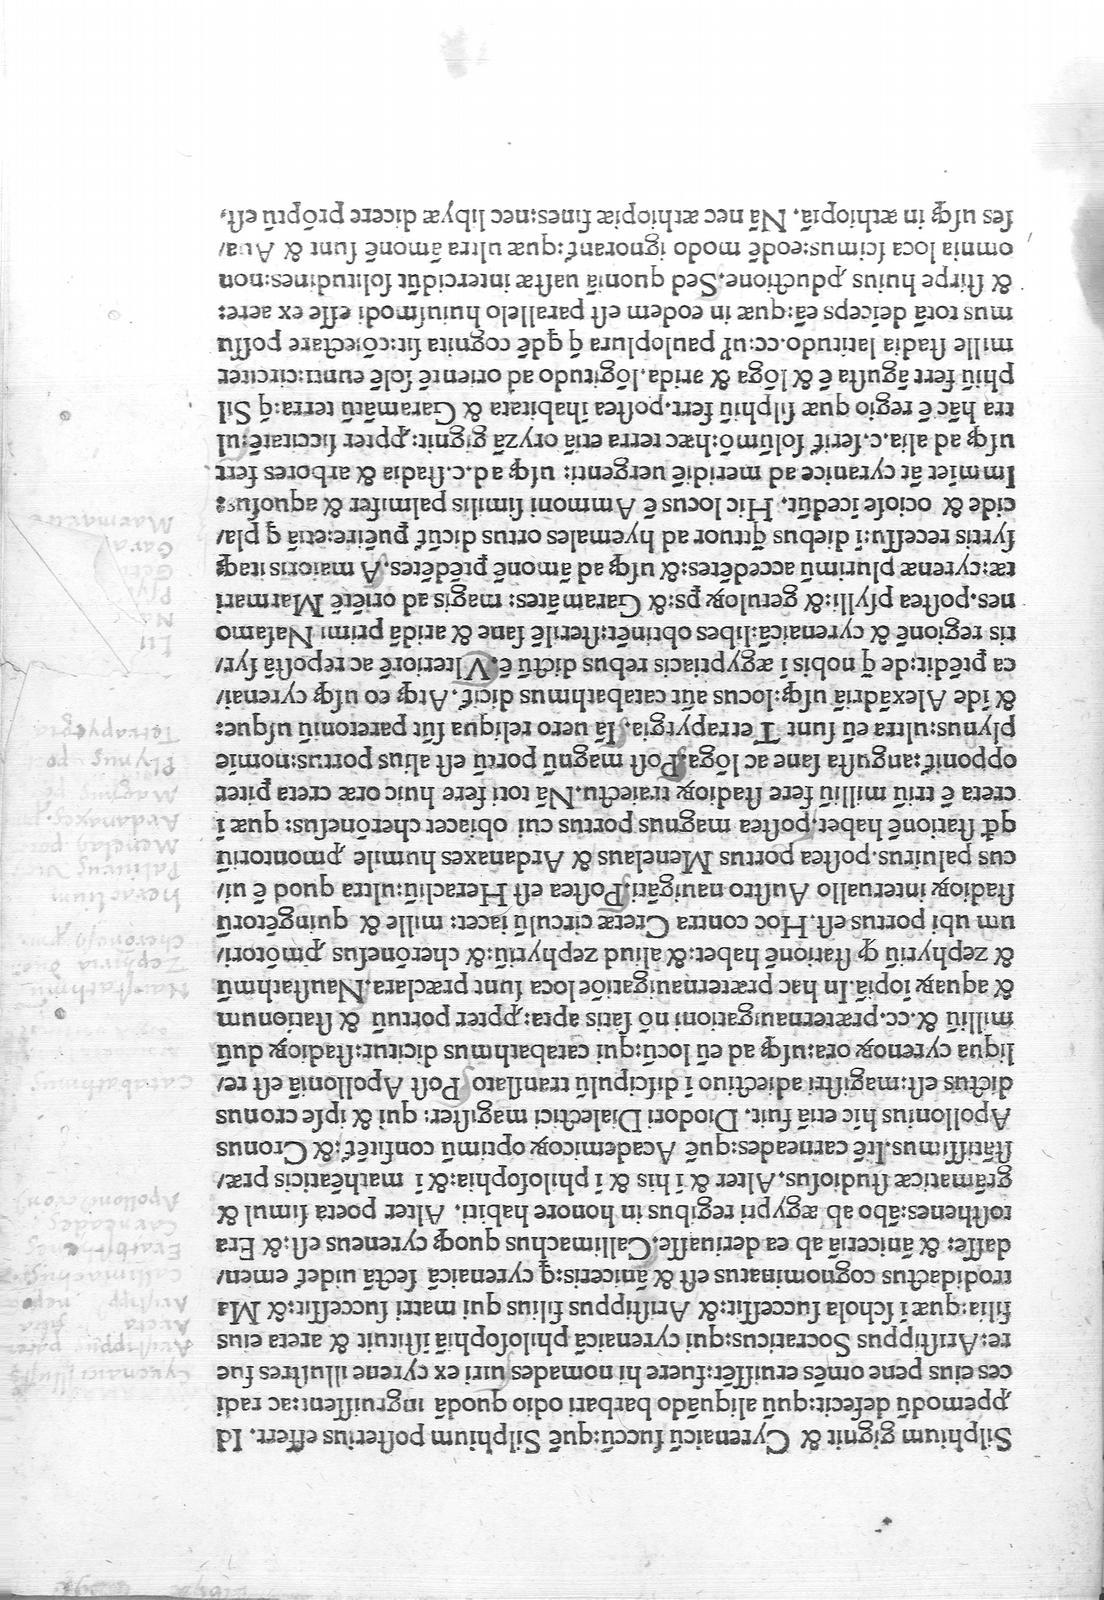 Silphium gignit & Cyrenaicũ succũ:quẽ Silphium posterius effert. Id
ꝓpemodũ defecit:quũ aliquãdo barbari odio quodã ingruissent:ac radi
ces eius pene omẽs eruissẽt:fuere hi nomades uiri ex cyrene illustres fue
re:Aristippus Socraticus:qui cyrenaicã philosophiã ĩstituit & areta eius
filia:quæ ĩ schola successit:& Aristippus filius qui matri successit:& Ma
trodidactus cognominatus est & ãniceris:ꝗ cyrenaicã sectã uidet᷑ emen/
dasse: & ãniceriã ab ea deriuasse.Callimachus quoqꝫ cyreneus est:& Era
tosthenes:ãbo ab ægypti regibus in honore habiti. Alter poeta simul &
grãmaticæ studiosus.Alter & ĩ his & ĩ philosophia:& ĩ mathẽaticis præ/
stãtissimus.Itẽ carneades:quẽ Academicoꝝ optimũ confitẽt᷑:& Cronus
Apollonius hic etiã fuit. Diodori Dialectici magister: qui & ipse cronus
dictus est:magistri adiectiuo ĩ discipulũ translato.Post Apolloniã est re/
liqua cyrenoꝝ ora:usqꝫ ad eũ locũ:qui catabathmus dicitur:stadioꝝ duũ
milliũ &.cc.præternauigationi nõ satis apta:ꝓpter portuũ & stationum
& aquaꝝ ĩopiã.In hac præternauigatiõe loca sunt præclara.Naustathmũ
& zephyriũ ꝗ stationẽ habet:& aliud zephyriũ:& cherõnesus ꝓmõtori/
um ubi portus est.Hoc contra Cretæ circulũ iacet: mille & quingẽtorũ
stadioꝝ interuallo Austro nauigãti.Postea est Heracliũ:ultra quod ẽ ui/
cus paliuirus.postea portus Menelaus & Ardanaxes humile ꝓmontoriũ
qđ stationẽ habet.postea magnus portus cui obiacet cherõnesus: quæ ĩ
creta ẽ triũ milliũ fere stadioꝝ traiectu.Nã toti fere huic oræ creta ꝑiter
opponit᷑:angusta sane ac lõga.Post magnũ portũ est alius portus:nomĩe
plynus:ultra eũ sunt Tetrapyrgia.Iã uero reliqua sũt paretoniũ usque:
& ĩde Alexãdriã usqꝫ:locus aũt catabathmus dicit᷑. Atqꝫ eo usqꝫ cyrenai/
ca ꝓtẽdit:de ꝗ nobis ĩ ægyptiacis rebus dictũ ẽ.Vlteriorẽ ac repostã syr/
tis regionẽ & cyrenaicã:libes obtinẽt:sterilẽ sane & aridã primi Nasamo
nes.postea psylli:& getuloꝝ ꝑs:& Garamãtes: magis ad oriẽtẽ Marmari
tæ:cyrenæ plurimũ accedẽtes:& usqꝫ ad ãmonẽ ꝓtẽdẽtes.A maioris itaqꝫ
syrtis recessu:ĩ diebus q̃tuor ad hyemales ortus dicũt᷑ puẽire:etiã ꝗ pla/
cide & ociose ĩcedũt. Hic locus ẽ Ammoni similis palmifer & aquosus:
Imminet ãt cyranice ad meridiẽ uergenti: usqꝫ ad.c.stadia & arbores fert
usqꝫ ad alia.c.serit᷑ solũmõ:hæc terra etiã oryzã gignit:ꝓpter siccitatẽ:ul
tra hãc ẽ regio quæ silphiũ fert.postea ĩhabitata & Garamãtũ terra:ꝗ Sil
phiũ fert ãgusta ẽ & lõga & arida.lõgitudo ad orientẽ solẽ eunti:circiter
mille stadia latitudo.cc:ul᷑ pauloplura ꝗ qđẽ cognita sit:cõiectare possu
mus totã deĩceps eã:quæ in eodem est parallelo huiusmodi esse ex aere:
& stirpe huius ꝓductione.Sed quoniã uastæ intercidũt solitudines:non
omnia loca scimus:eodẽ modo ignorant᷑:quæ ultra ãmonẽ sunt & Aua/
ses usqꝫ in æthiopiã. Nã nec æthiopiæ fines:nec libyæ dicere prõptũ est.
Carneades
Catabathmus
Zephiria duo
heraclium
Tetrapyrgia